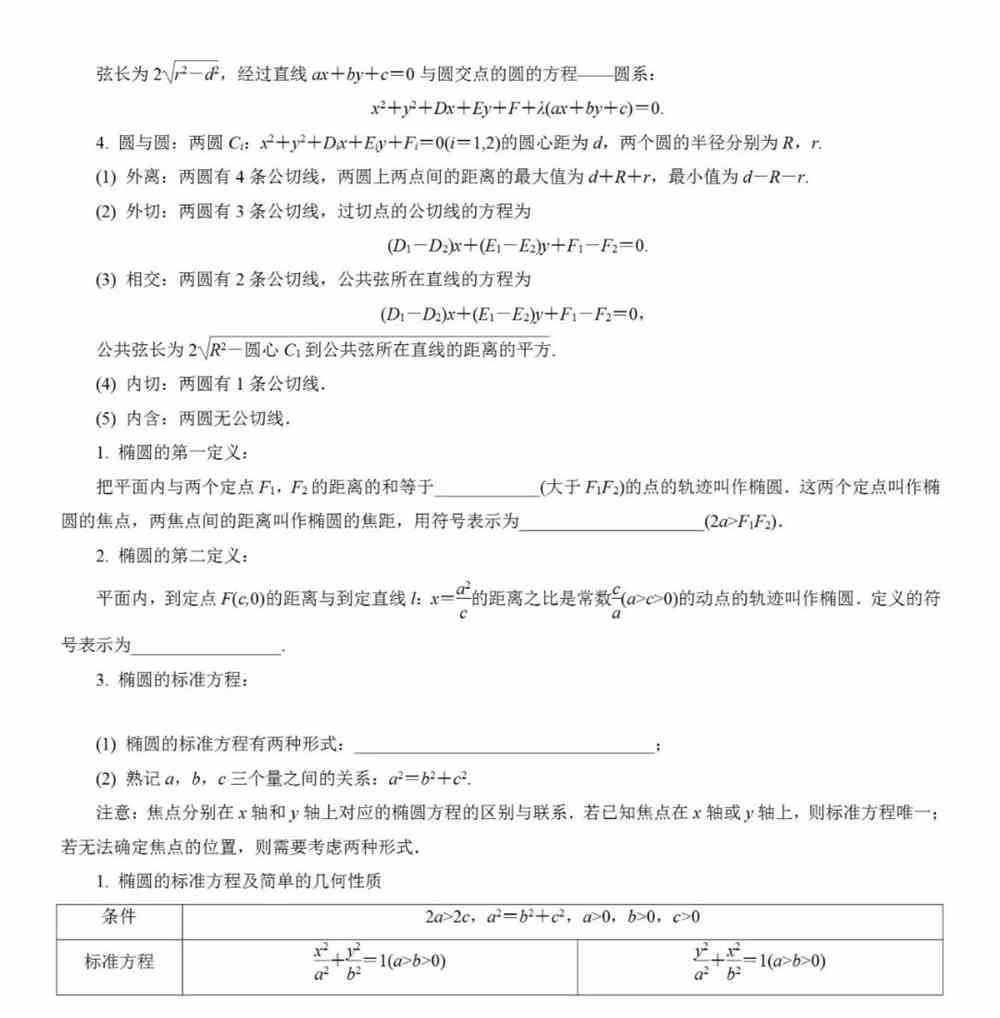 弦长为 2√(r²－d²)，经过直线 ax＋by＋c＝0 与圆交点的圆的方程——圆系：
x²＋y²＋Dx＋Ey＋F＋λ(ax＋by＋c)＝0.
4. 圆与圆：两圆 Cᵢ：x²＋y²＋Dᵢx＋Eᵢy＋Fᵢ＝0(i＝1,2)的圆心距为 d，两个圆的半径分别为 R，r.
(1) 外离：两圆有 4 条公切线，两圆上两点间的距离的最大值为 d＋R＋r，最小值为 d－R－r.
(2) 外切：两圆有 3 条公切线，过切点的公切线的方程为
(D₁－D₂)x＋(E₁－E₂)y＋F₁－F₂＝0.
(3) 相交：两圆有 2 条公切线，公共弦所在直线的方程为
(D₁－D₂)x＋(E₁－E₂)y＋F₁－F₂＝0，
公共弦长为 2√(R²－圆心 C₁ 到公共弦所在直线的距离的平方).
(4) 内切：两圆有 1 条公切线．
(5) 内含：两圆无公切线．
1. 椭圆的第一定义：
把平面内与两个定点 F₁，F₂ 的距离的和等于____________(大于 F₁F₂)的点的轨迹叫作椭圆．这两个定点叫作椭
圆的焦点，两焦点间的距离叫作椭圆的焦距，用符号表示为_____________________(2a>F₁F₂)．
2. 椭圆的第二定义：
平面内，到定点 F(c,0)的距离与到定直线 l：x＝a²/c的距离之比是常数c/a(a>c>0)的动点的轨迹叫作椭圆．定义的符
号表示为_________________.
3. 椭圆的标准方程：
(1) 椭圆的标准方程有两种形式：__________________________________；
(2) 熟记 a，b，c 三个量之间的关系：a²＝b²＋c².
注意：焦点分别在 x 轴和 y 轴上对应的椭圆方程的区别与联系．若已知焦点在 x 轴或 y 轴上，则标准方程唯一；
若无法确定焦点的位置，则需要考虑两种形式．
1. 椭圆的标准方程及简单的几何性质
条件 2a>2c，a²＝b²＋c²，a>0，b>0，c>0
标准方程 x²/a²＋y²/b²＝1(a>b>0) y²/a²＋x²/b²＝1(a>b>0)